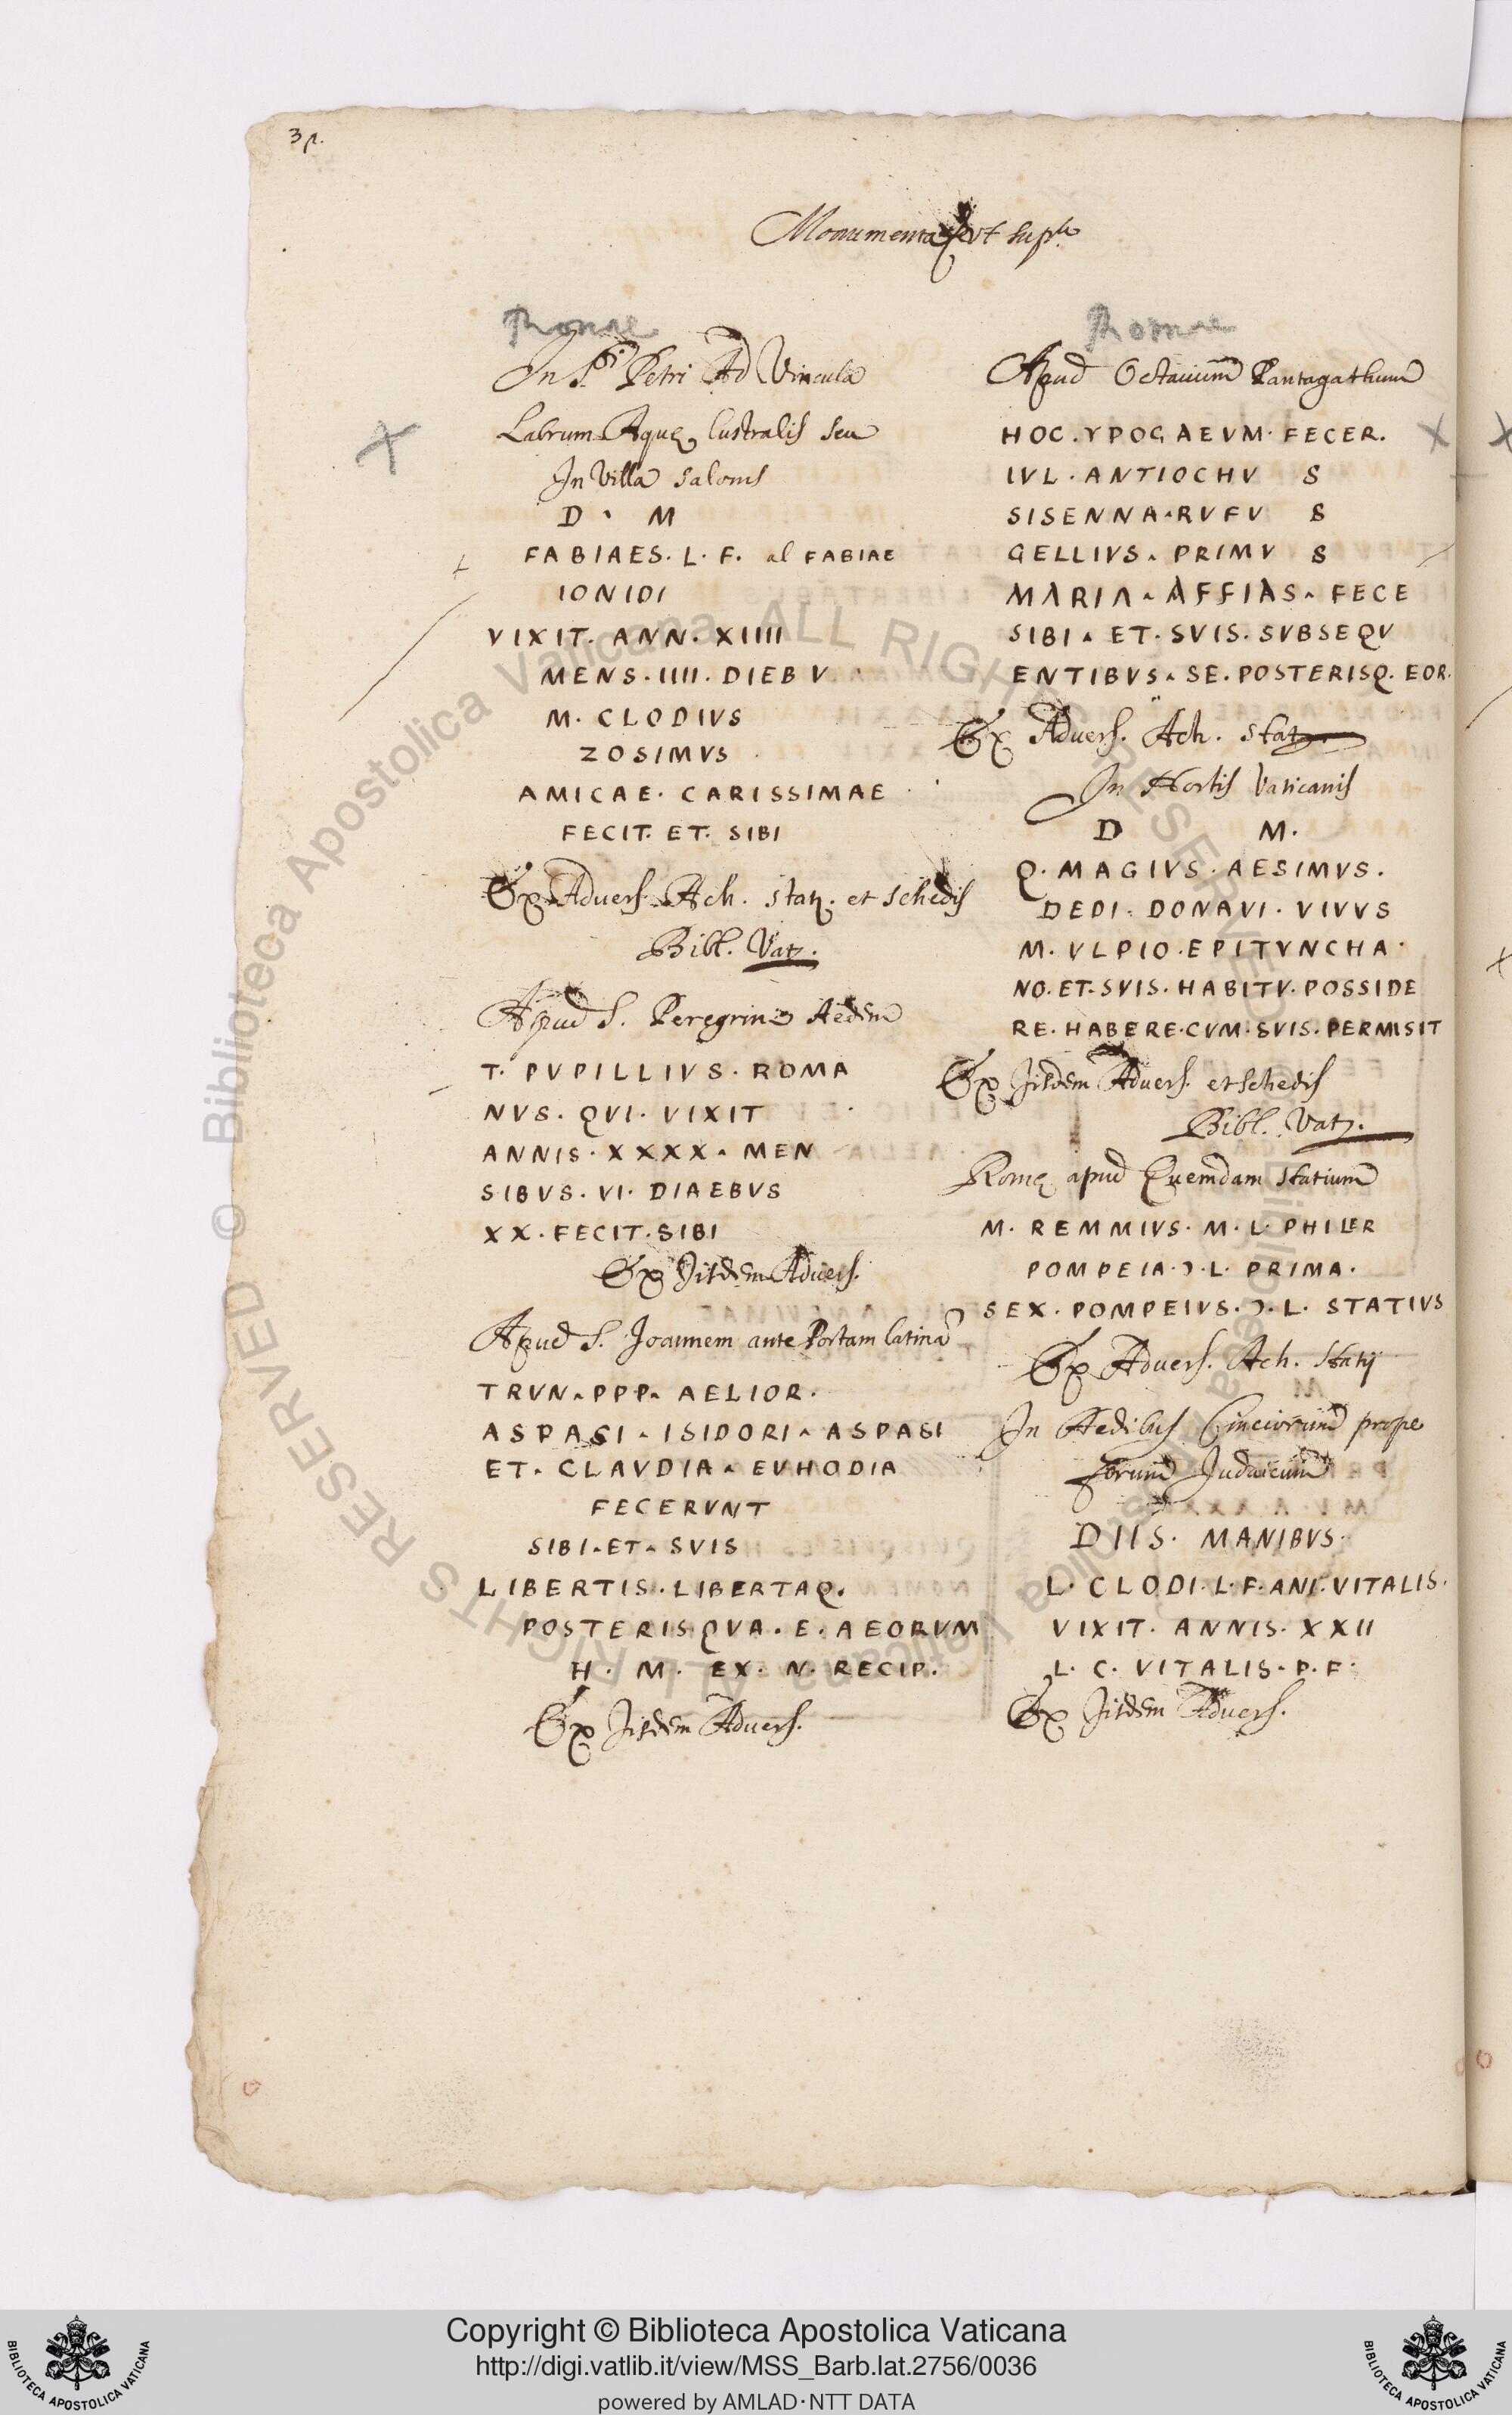 Monumenta ut sup.ª
Romae
In S. Petri Ad Vincula
Labrum Aquę lustralis seu
In Villa Salonis
D · M
FABIAES. L. F. al FABIAE
IONIDI
VIXIT. ANN. XIIII
MENS. IIII. DIEB V
M. CLODIVS
ZOSIMVS
AMICAE. CARISSIMAE
FECIT. ET. SIBI
Ex Advers. Ach. Statij. et Schedis
Bibl. Vat.
Apud S. Peregrini Aedem
T. PVPILLIVS. ROMA
NVS. QVI. VIXIT
ANNIS. XXXX. MEN
SIBVS. VI. DIAEBVS
XX. FECIT. SIBI
Ex Jisdem Advers.
Apud S. Joannem ante Portam latina
TRVN. PPP. AELIOR.
ASPASI. ISIDORI. ASPASI
ET. CLAVDIA. EVHODIA
FECERVNT
SIBI. ET. SVIS
LIBERTIS. LIBERTAQ.
POSTERISQVA. E. AEORVM
H. M. EX. N. RECIP.
Ex Jisdem Advers.
Romae
Apud Octauium Pantagathum
HOC. YPOGAEVM. FECER.
IVL. ANTIOCHV S
SISENNA. RVFV S
GELLIVS. PRIMV S
MARIA. AFFIAS. FECE
SIBI. ET. SVIS. SVBSEQV
ENTIBVS. SE. POSTERISQ. EOR.
Ex Advers. Ach. Statij.
In Hortis Vaticanis
D M.
Q. MAGIVS. AESIMVS.
DEDI. DONAVI. VIVVS
M. VLPIO. EPITVNCHA.
NO. ET. SVIS. HABITV. POSSIDE
RE. HABERE. CVM. SVIS. PERMISIT
Ex Jisdem Advers. et Schedis
Bibl. Vat.
Romę apud Quemdam Statium
M. REMMIVS. M. L. PHILER
POMPEIA. Ɔ. L. PRIMA.
SEX. POMPEIVS. Ɔ. L. STATIVS
Ex Advers. Ach. Statij
In Aedibus Cinciorum prope
forum Judaicum
DIIS. MANIBVS.
L. CLODI. L. F. ANI. VITALIS.
VIXIT. ANNIS. XXII
L. C. VITALIS. P. F.
Ex Jisdem Advers.
© Biblioteca Apostolica Vaticana ALL RIGHTS RESERVED
Copyright © Biblioteca Apostolica Vaticana
http://digi.vatlib.it/view/MSS_Barb.lat.2756/0036
powered by AMLAD·NTT DATA
BIBLIOTECA APOSTOLICA VATICANA
BIBLIOTECA APOSTOLICA VATICANA